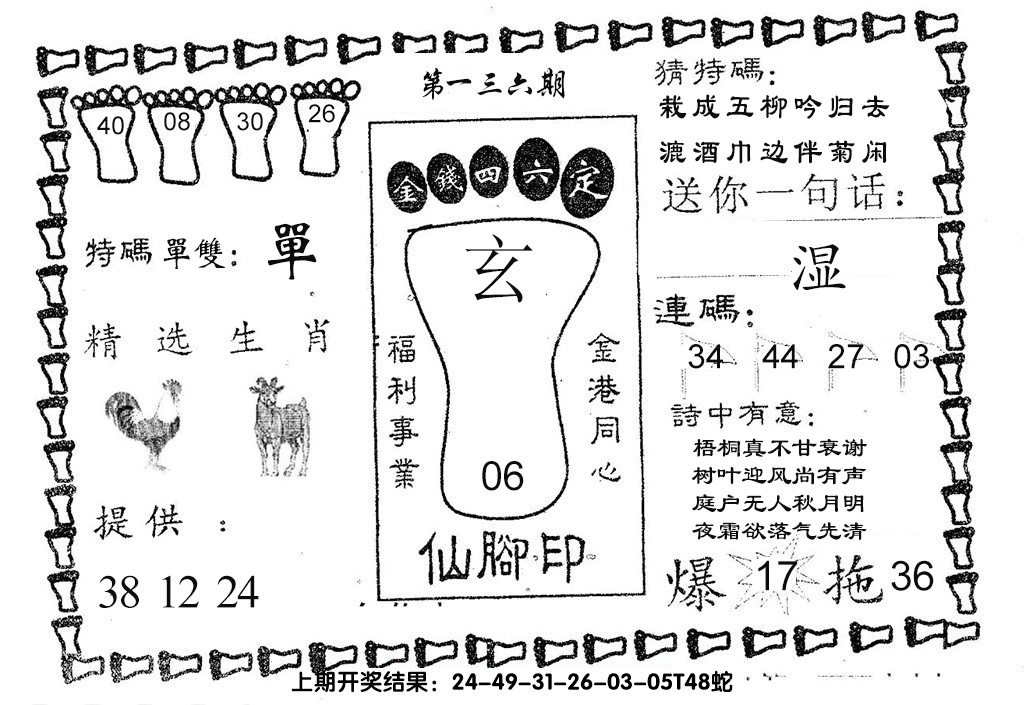 第一三六期
40 08 30 26
特碼單雙：單
精选生肖
提供：
38 12 24
金錢四六定
玄
福利事業
金港同心
06
仙腳印
猜特碼：
栽成五柳吟归去
漉酒巾边伴菊闲
送你一句话：
湿
連碼：
34 44 27 03
詩中有意：
梧桐真不甘衰谢
树叶迎风尚有声
庭户无人秋月明
夜霜欲落气先清
爆 17 拖 36
上期开奖结果：24-49-31-26-03-05T48蛇